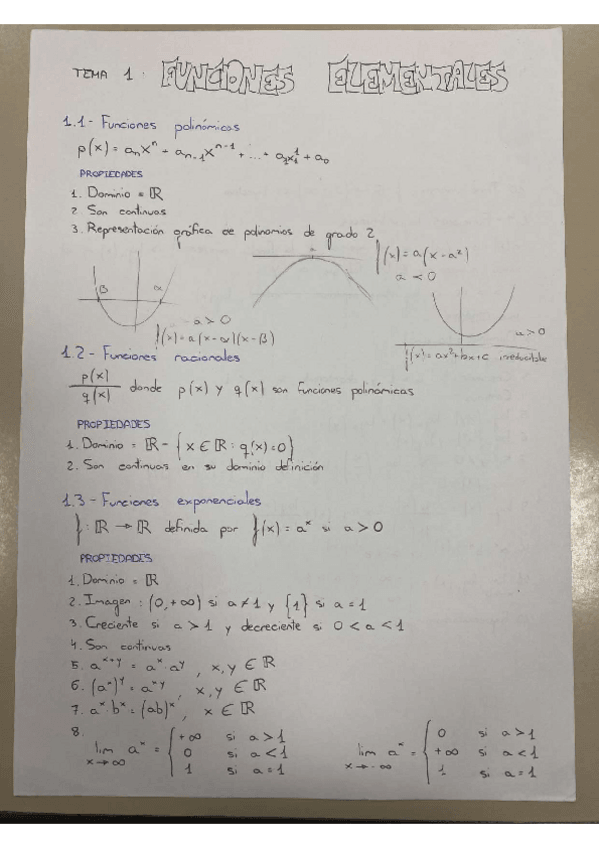 TEMA 1: FUNCIONES ELEMENTALES
1.1- Funciones polinómicas
p(x) = aₙxⁿ + aₙ₋₁xⁿ⁻¹ + ... + a₁x¹ + a₀
PROPIEDADES
1. Dominio = ℝ
2. Son continuas
3. Representación gráfica de polinomios de grado 2
f(x) = a(x - α²)
a < 0
β α
a > 0
f(x) = a(x - α)(x - β)
a > 0
f(x) = ax² + bx + c irreducible
1.2- Funciones racionales
p(x)/q(x) donde p(x) y q(x) son funciones polinómicas
PROPIEDADES
1. Dominio = ℝ - {x ∈ ℝ : q(x) = 0}
2. Son continuas en su dominio definición
1.3- Funciones exponenciales
f: ℝ → ℝ definida por f(x) = aˣ si a > 0
PROPIEDADES
1. Dominio = ℝ
2. Imagen: (0, +∞) si a ≠ 1 y {1} si a = 1
3. Creciente si a > 1 y decreciente si 0 < a < 1
4. Son continuas
5. aˣ⁺ʸ = aˣ · aʸ, x, y ∈ ℝ
6. (aˣ)ʸ = aˣʸ, x, y ∈ ℝ
7. aˣ · bˣ = (ab)ˣ, x ∈ ℝ
8.
lim x→∞ aˣ = { +∞ si a > 1
0 si a < 1
1 si a = 1
lim x→-∞ aˣ = { 0 si a > 1
+∞ si a < 1
1 si a = 1